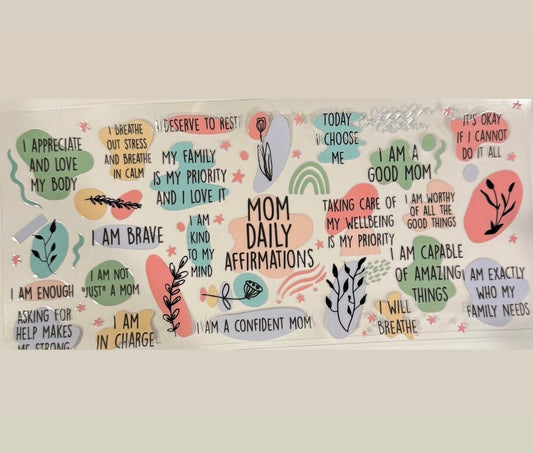 I APPRECIATE
AND LOVE
MY BODY
I BREATHE
OUT STRESS
AND BREATHE
IN CALM
I DESERVE TO REST
MY FAMILY
IS MY PRIORITY
AND I LOVE IT
TODAY
I CHOOSE
ME
I AM A
GOOD MOM
IT'S OKAY
IF I CANNOT
DO IT ALL
I AM BRAVE
I AM
KIND
TO MY
MIND
MOM
DAILY
AFFIRMATIONS
TAKING CARE OF
MY WELLBEING
IS MY PRIORITY
I AM WORTHY
OF ALL THE
GOOD THINGS
I AM ENOUGH
I AM NOT
"JUST" A MOM
I AM CAPABLE
OF AMAZING
THINGS
I AM EXACTLY
WHO MY
FAMILY NEEDS
ASKING FOR
HELP MAKES
ME STRONG
I AM
IN CHARGE
I AM A CONFIDENT MOM
I WILL
BREATHE